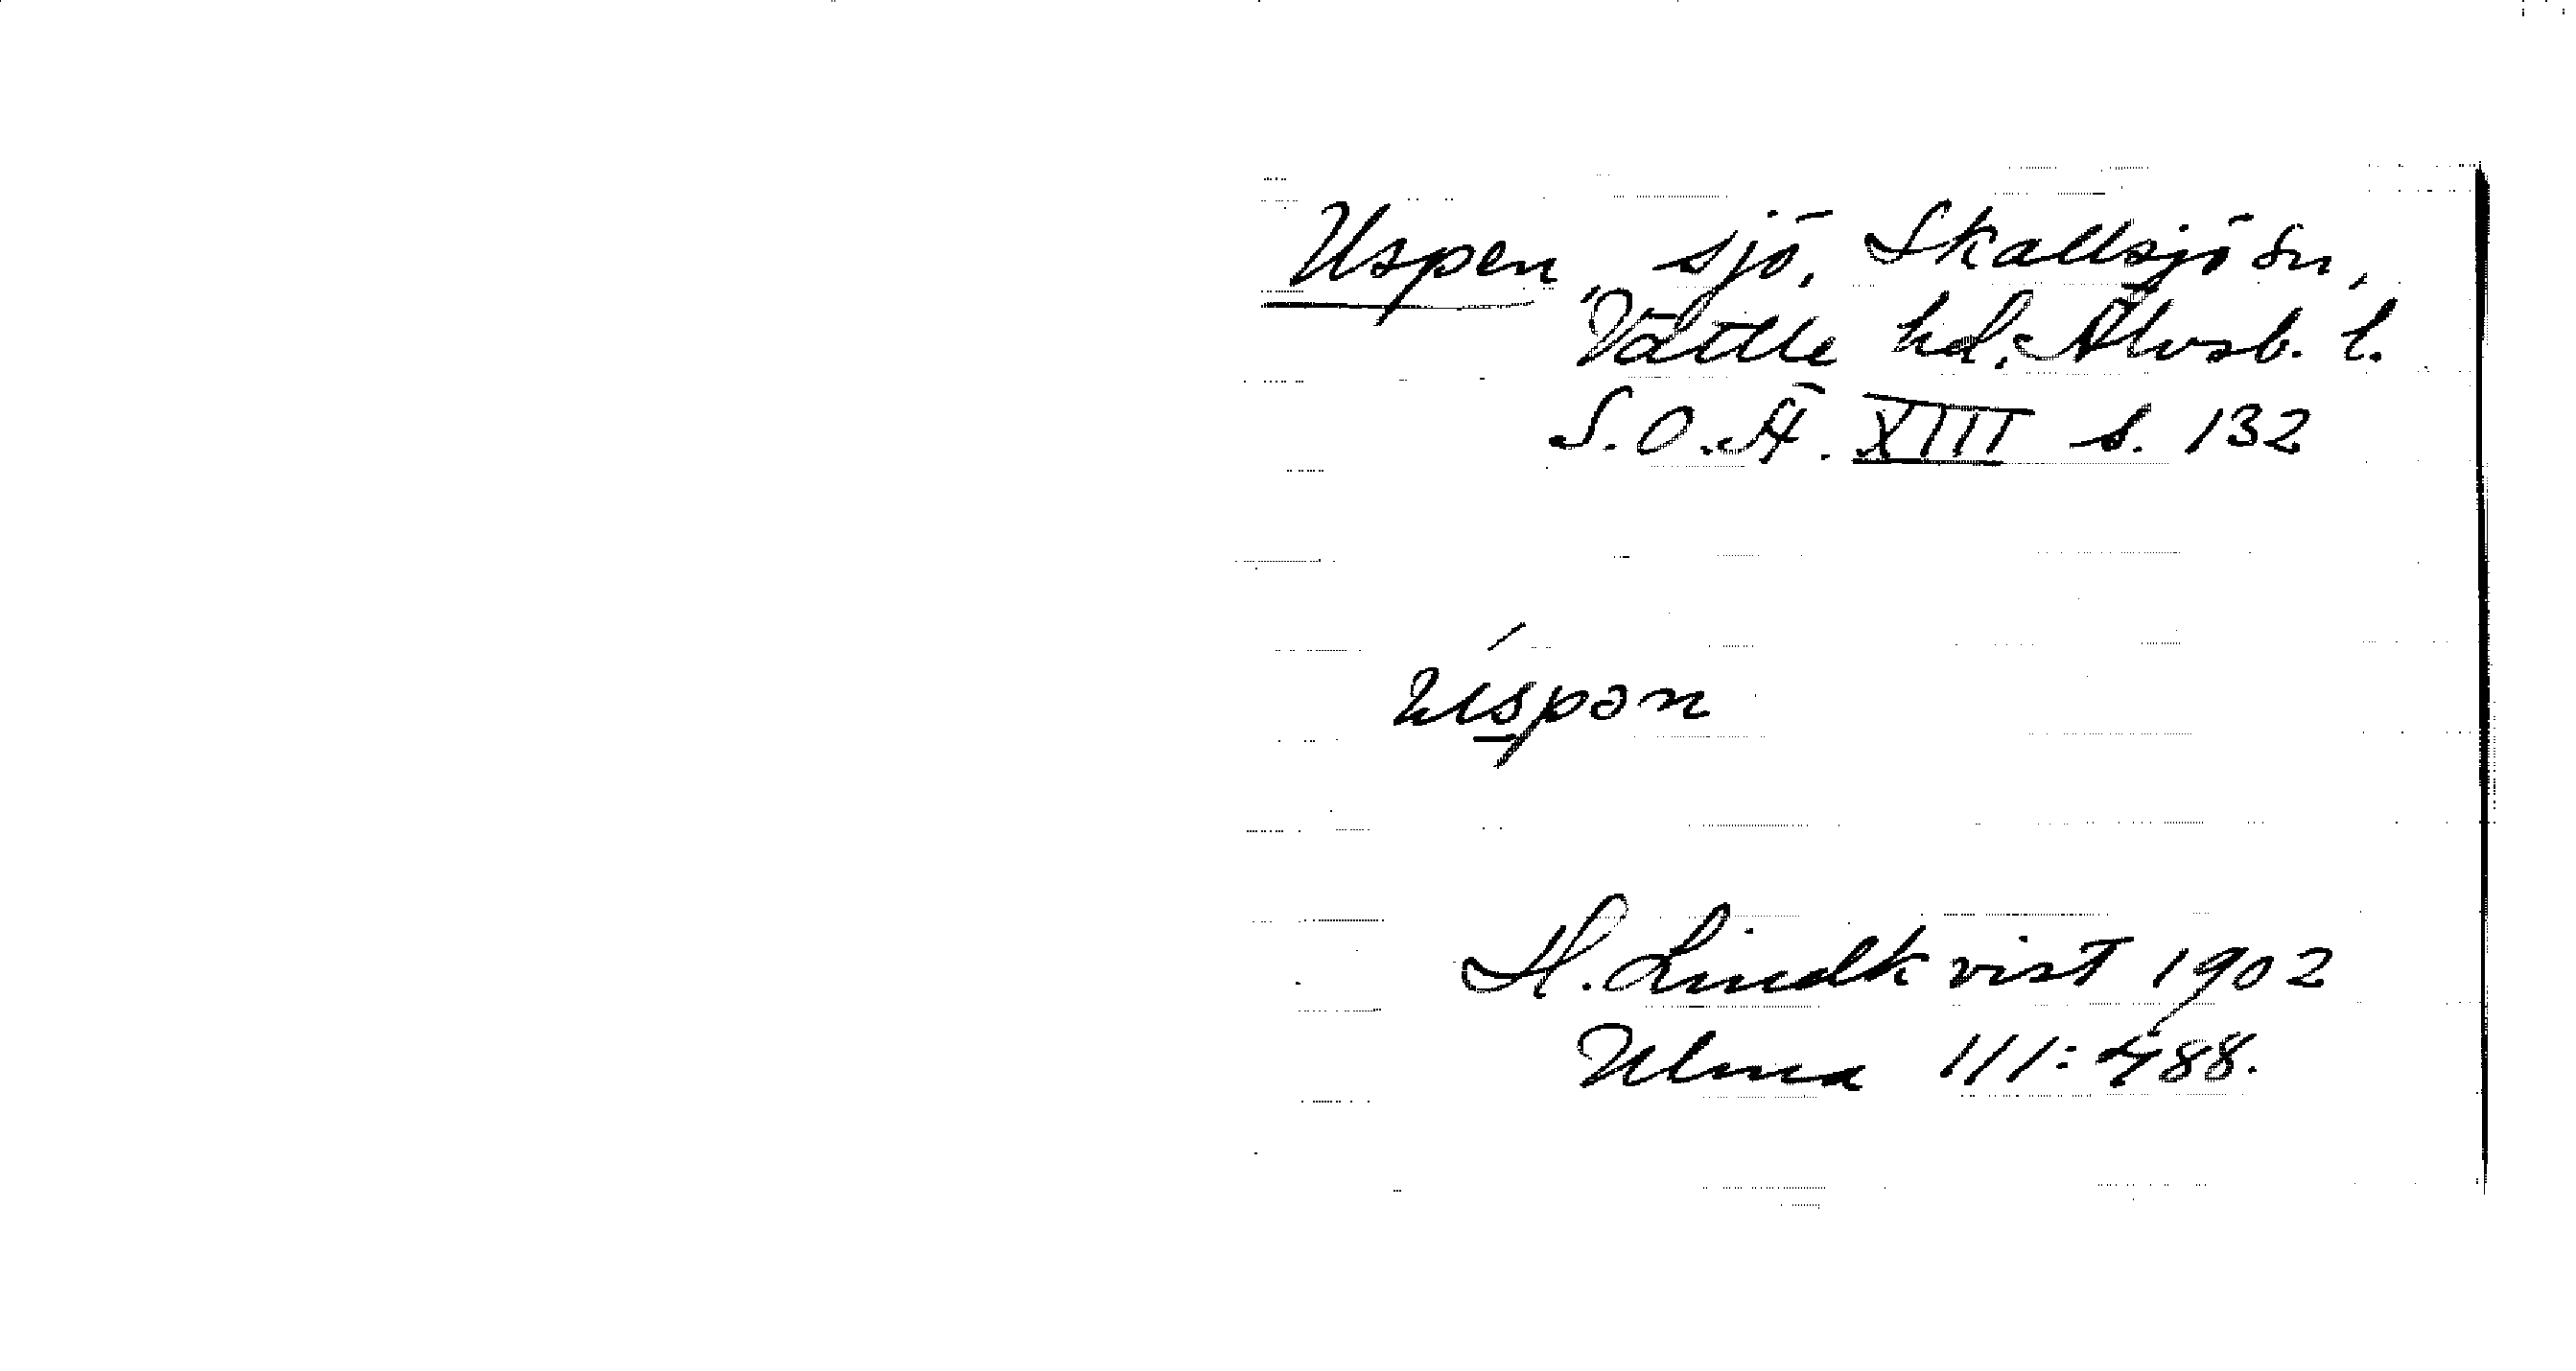 Uspen, sjö, Skallsjö sn,
Vättle hd, Älvsb. l.
S.O.Ä. XIII s. 132
úspən
H. Lindkvist 1902
Ulma 111:488.